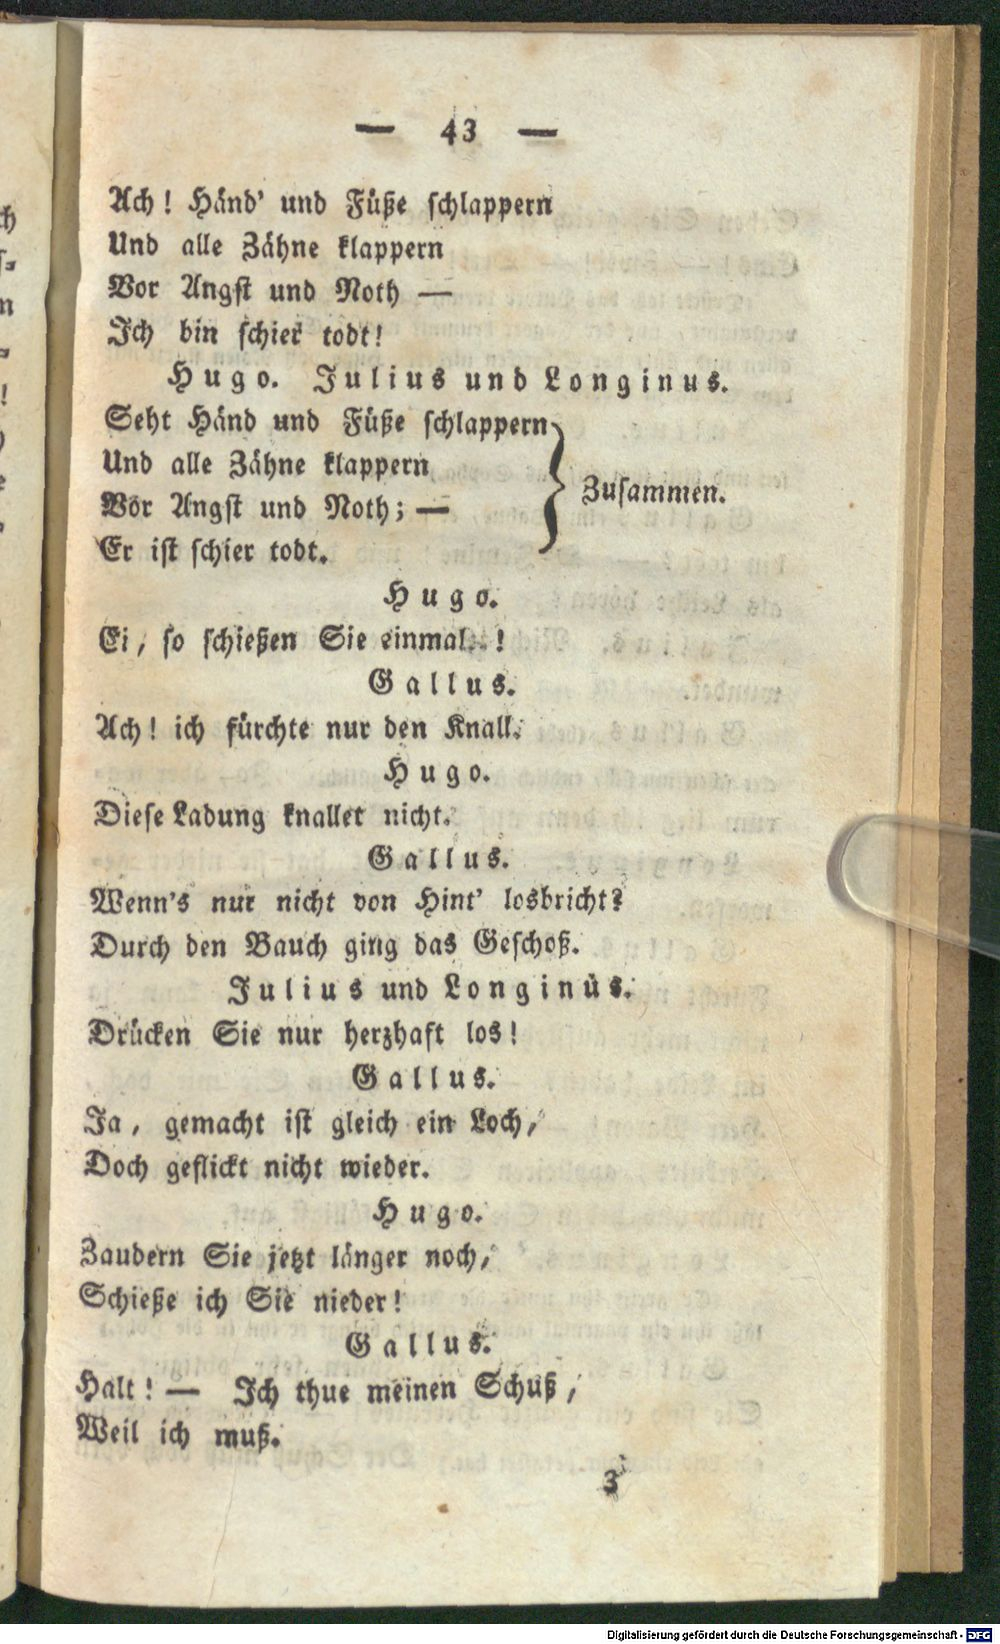 — 43 —
Ach! Händ' und Füße schlappern
Und alle Zähne klappern
Vor Angst und Noth —
Ich bin schier todt!
Hugo. Julius und Longinus.
Seht Händ und Füße schlappern
Und alle Zähne klappern
Vor Angst und Noth; —
Er ist schier todt.
Zusammen.
Hugo.
Ei, so schießen Sie einmal..!
Gallus.
Ach! ich fürchte nur den Knall.
Hugo.
Diese Ladung knallet nicht.
Gallus.
Wenn's nur nicht von Hint' losbricht?
Durch den Bauch ging das Geschoß.
Julius und Longinus.
Drücken Sie nur herzhaft los!
Gallus.
Ja, gemacht ist gleich ein Loch,
Doch geflickt nicht wieder.
Hugo.
Zaudern Sie jetzt länger noch,
Schieße ich Sie nieder!
Gallus.
Halt! — Ich thue meinen Schuß,
Weil ich muß.
3
Digitalisierung gefördert durch die Deutsche Forschungsgemeinschaft - DFG